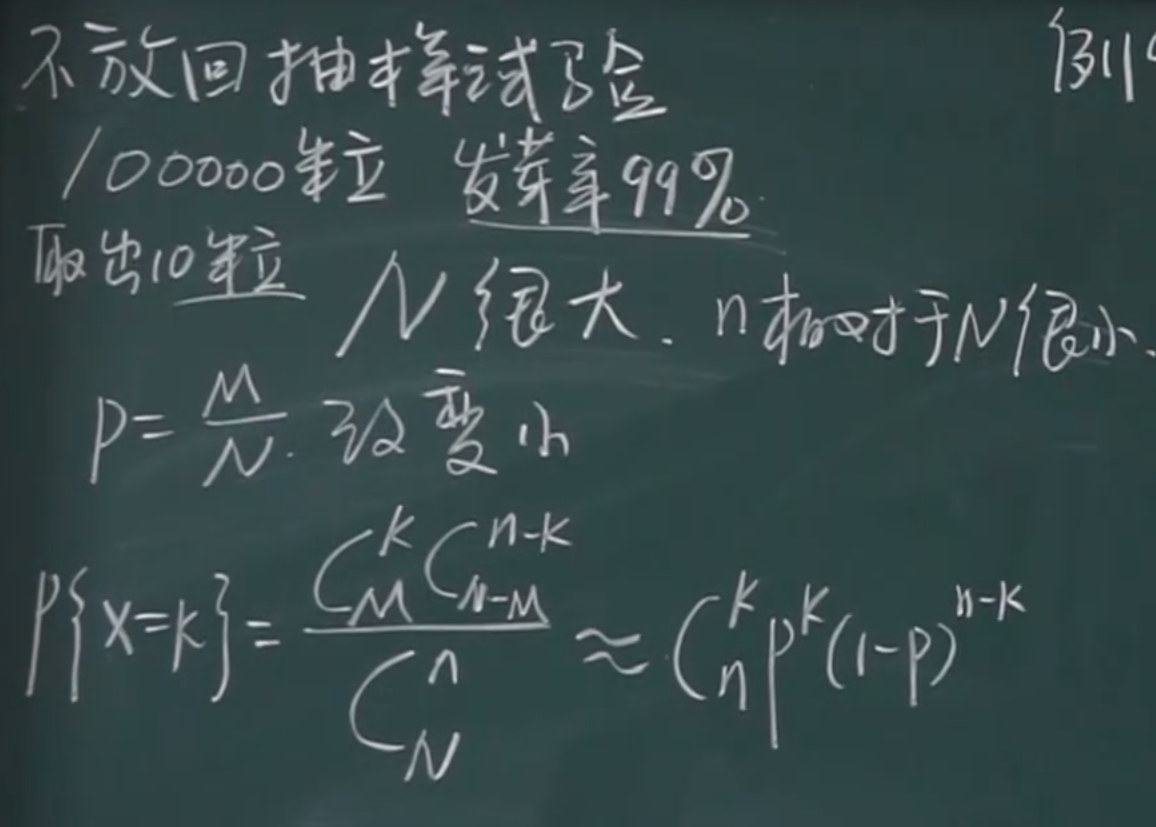 不放回抽样试验
例
100000粒 发芽率99%.
取出10粒 N很大. n相对于N很小.
P=M/N. 改变小
P{X=k}=C_M^k C_{N-M}^{n-k}/C_N^n≈C_n^k P^k(1-P)^{n-k}